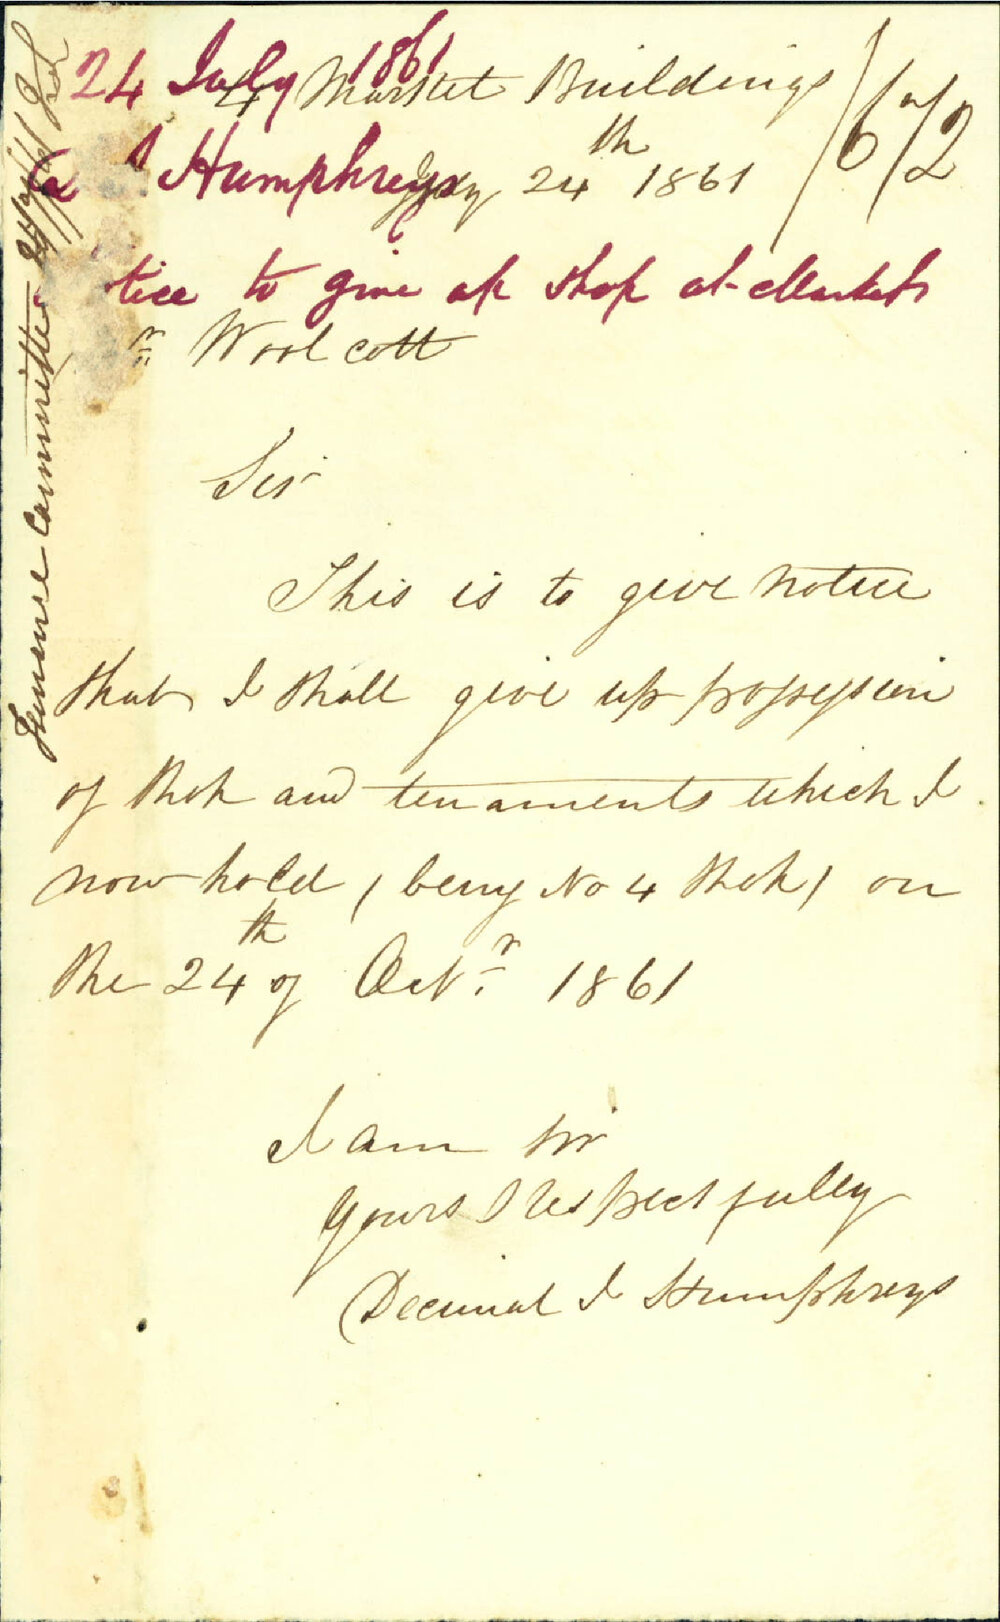 24 July 1861
4 Market Buildings
Humphreys
July 24th 1861
tice to give up shop at Markets
r Woolcott
Sir
This is to give notice
that I shall give up possession
of shop and tenaments which I
now hold (being No 4 shop) on
the 24th of Octr. 1861
I am Sir
Yours Respectfully
Decimal J Humphreys
Finance Committee